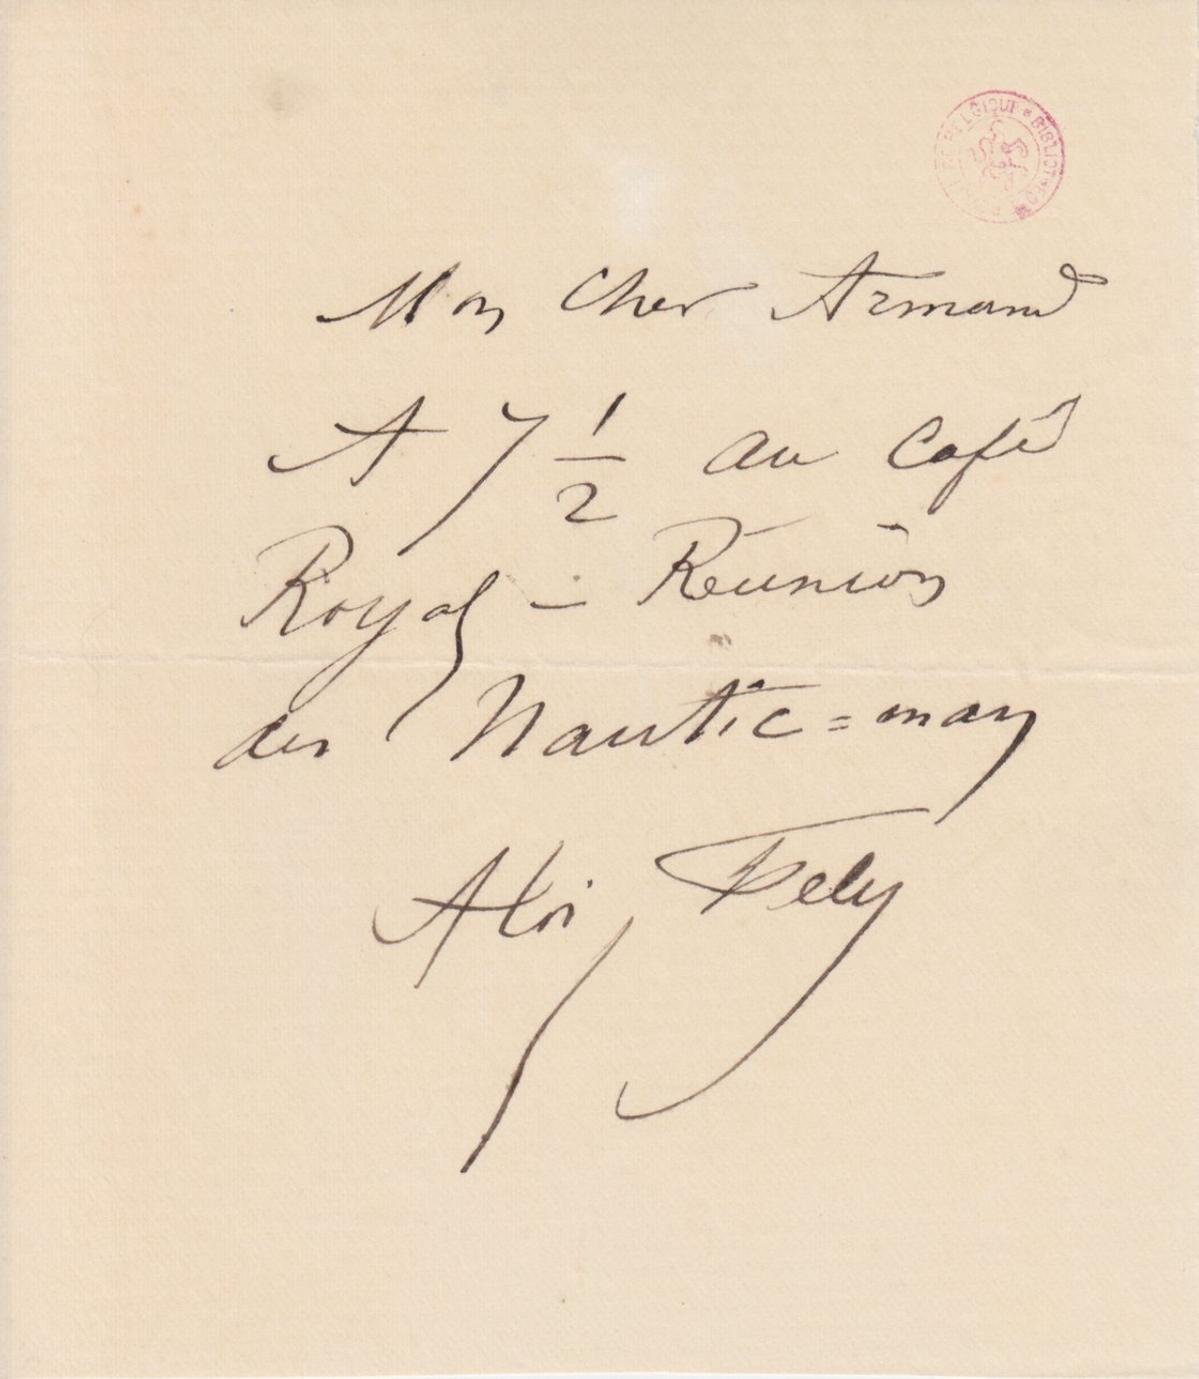 BELGIQUE * BIBLIOTHEQ
Mon Cher Armand
A 7 1/2 au Café
Royal – Réunion
des Nautic=man
A toi,
Fély